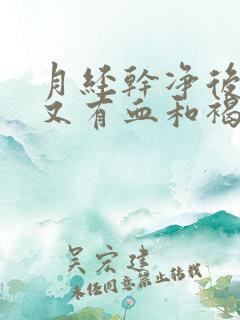 月經幹淨後
又有血和褐
吴宏建
未任同意禁止转载